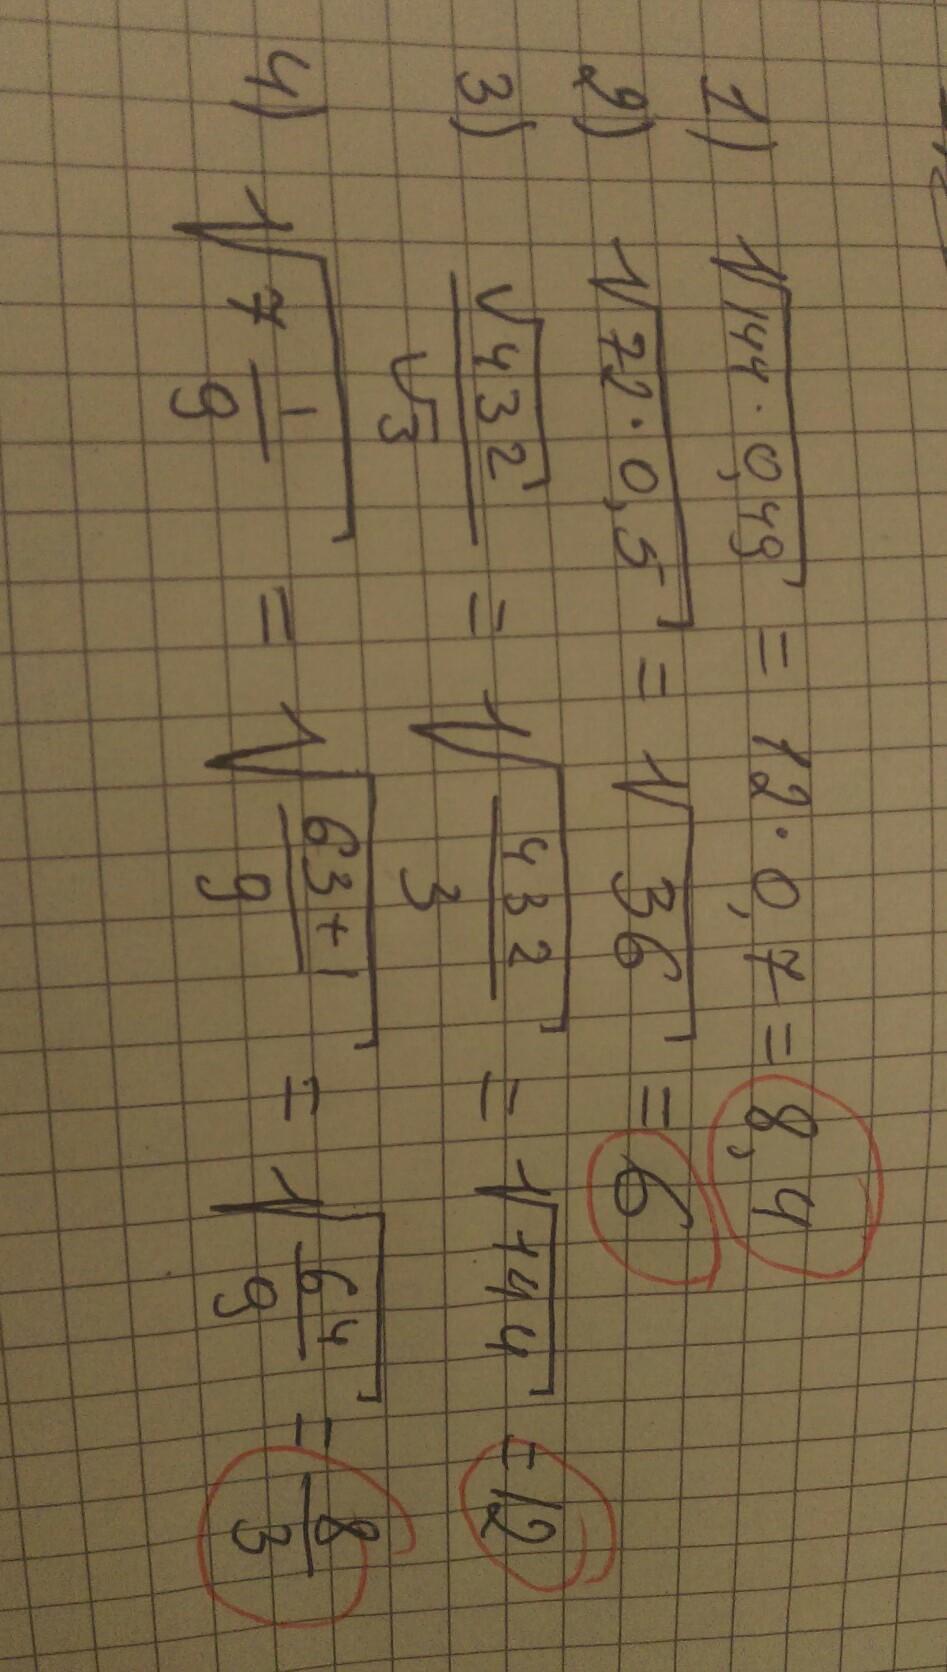 1) √144·0,49 = 12·0,7 = 8,4
2) √72·0,5 = √36 = 6
3) √432/√3 = √432/3 = √144 = 12
4) √7 1/9 = √63+1/9 = √64/9 = 8/3